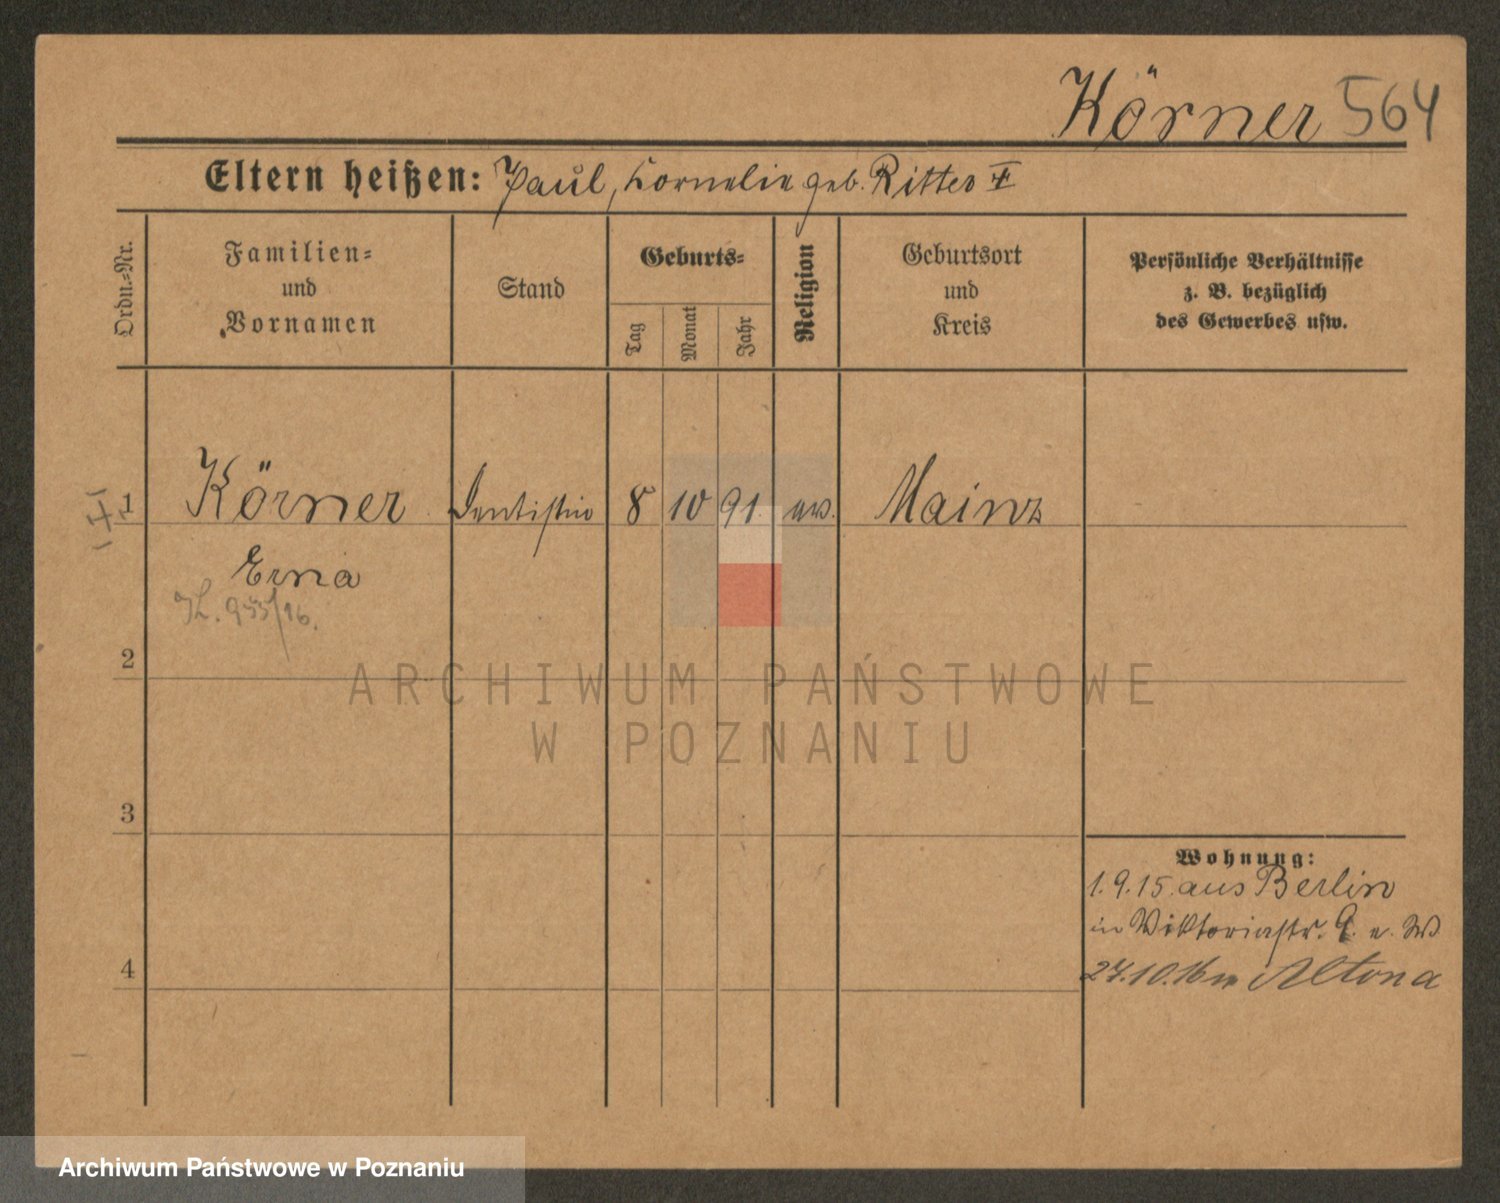 Körner 564
Eltern heißen: Paul, Cornelie geb. Ritter
Ordn.-Nr.
Familien-
und
Vornamen
Stand
Geburts-
Tag
Monat
Jahr
Religion
Geburtsort
und
Kreis
Persönliche Verhältnisse
z. B. bezüglich
des Gewerbes usw.
1 Körner Dentistin 8 10 91 ev. Mainz
Erna
2
3
4
Wohnung:
1.9.15. aus Berlin
in Viktoriastr. 9.
27.10.16 Altona
ARCHIWUM PAŃSTWOWE
W POZNANIU
Archiwum Państwowe w Poznaniu